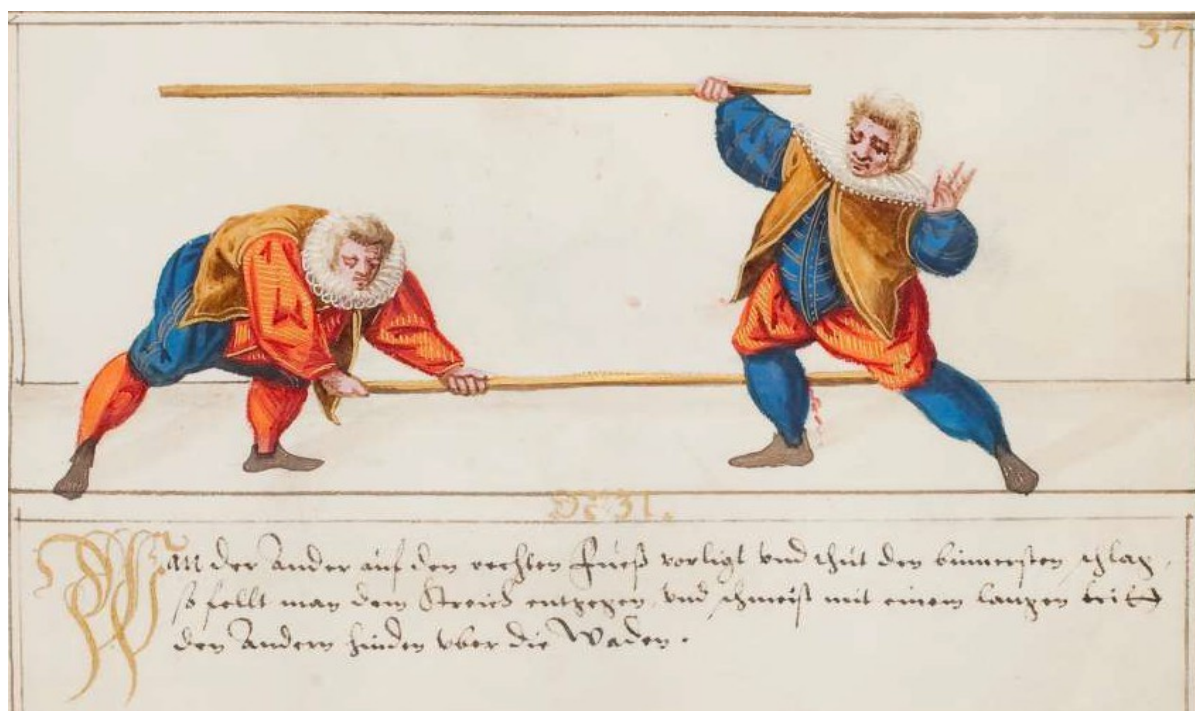 37
No 31.
Wan der Ander auf den rechten Fueß vorligt vnd thut den binnersten schlag,
so fellt man dem Streich entgegen, vnd schmeist mit einem langen
den Andern hinden vber die Waden.